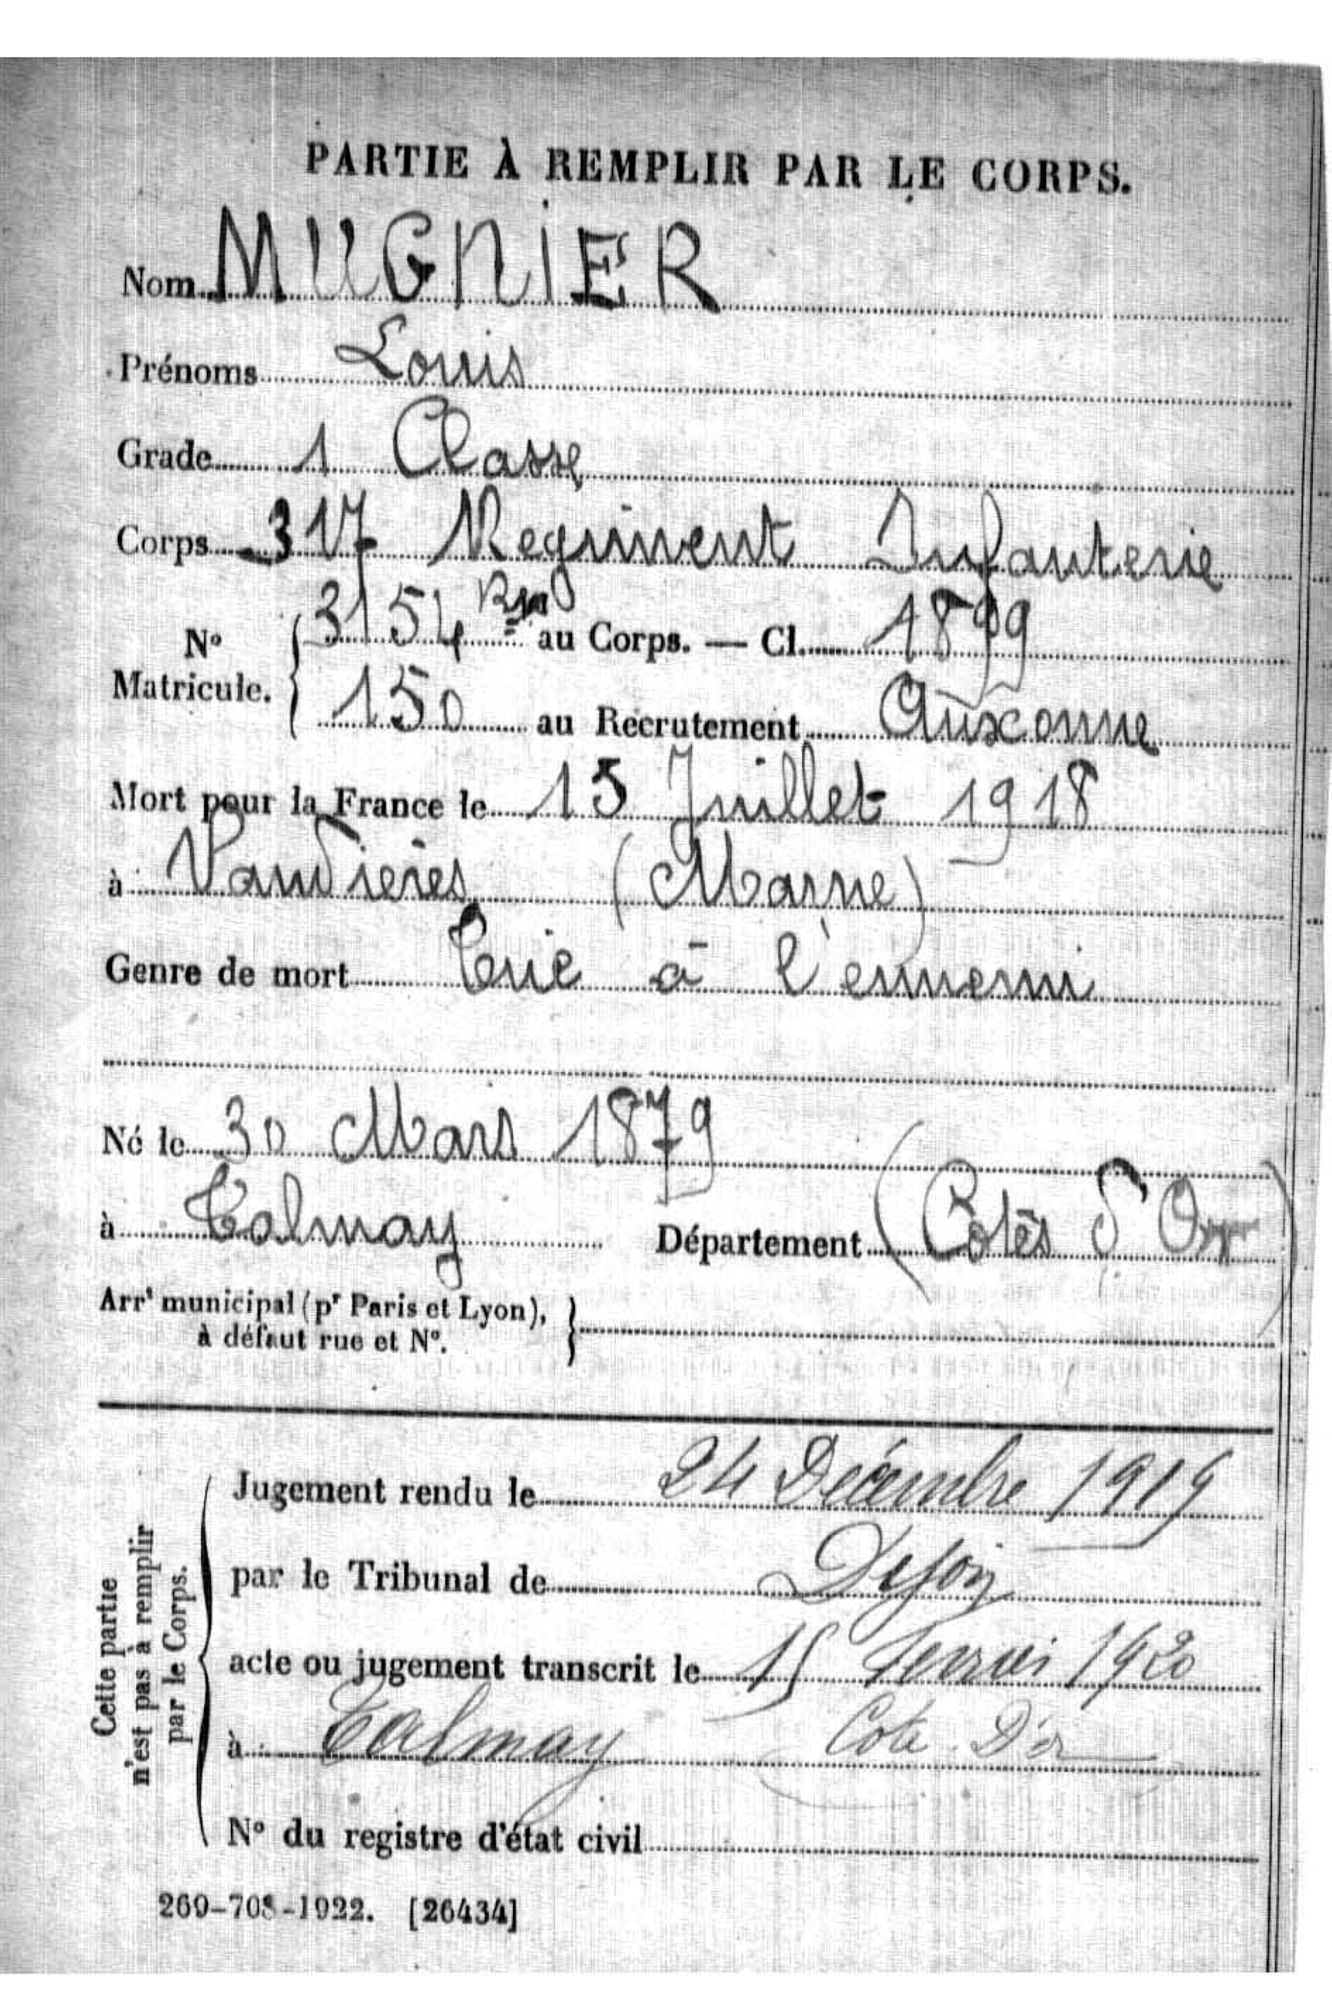 PARTIE À REMPLIR PAR LE CORPS.
Nom MUGNIER
Prénoms Louis
Grade 1 Classe
Corps 317 Regiment Infanterie
N° Matricule. 3154 au Corps. — Cl. 1899
150 au Recrutement Auxonne
Mort pour la France le 15 Juillet 1918
à Vandières (Marne)
Genre de mort Tué à l'ennemi
Né le 30 Mars 1879
à Talmay Département (Côtes d'Or)
Arrt municipal (pr Paris et Lyon),
à défaut rue et N°.
Cette partie n'est pas à remplir par le Corps.
Jugement rendu le 24 Décembre 1919
par le Tribunal de Dijon
acte ou jugement transcrit le 15 1920
à Talmay Cote D'or
N° du registre d'état civil
260-708-1922. [26434]